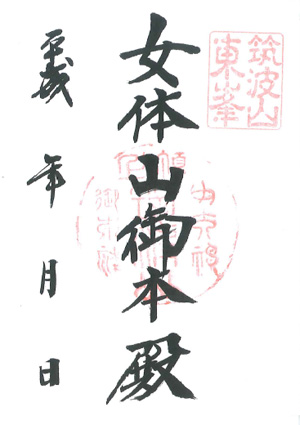 筑波山
東峯
女体山御本殿
平成 年 月 日